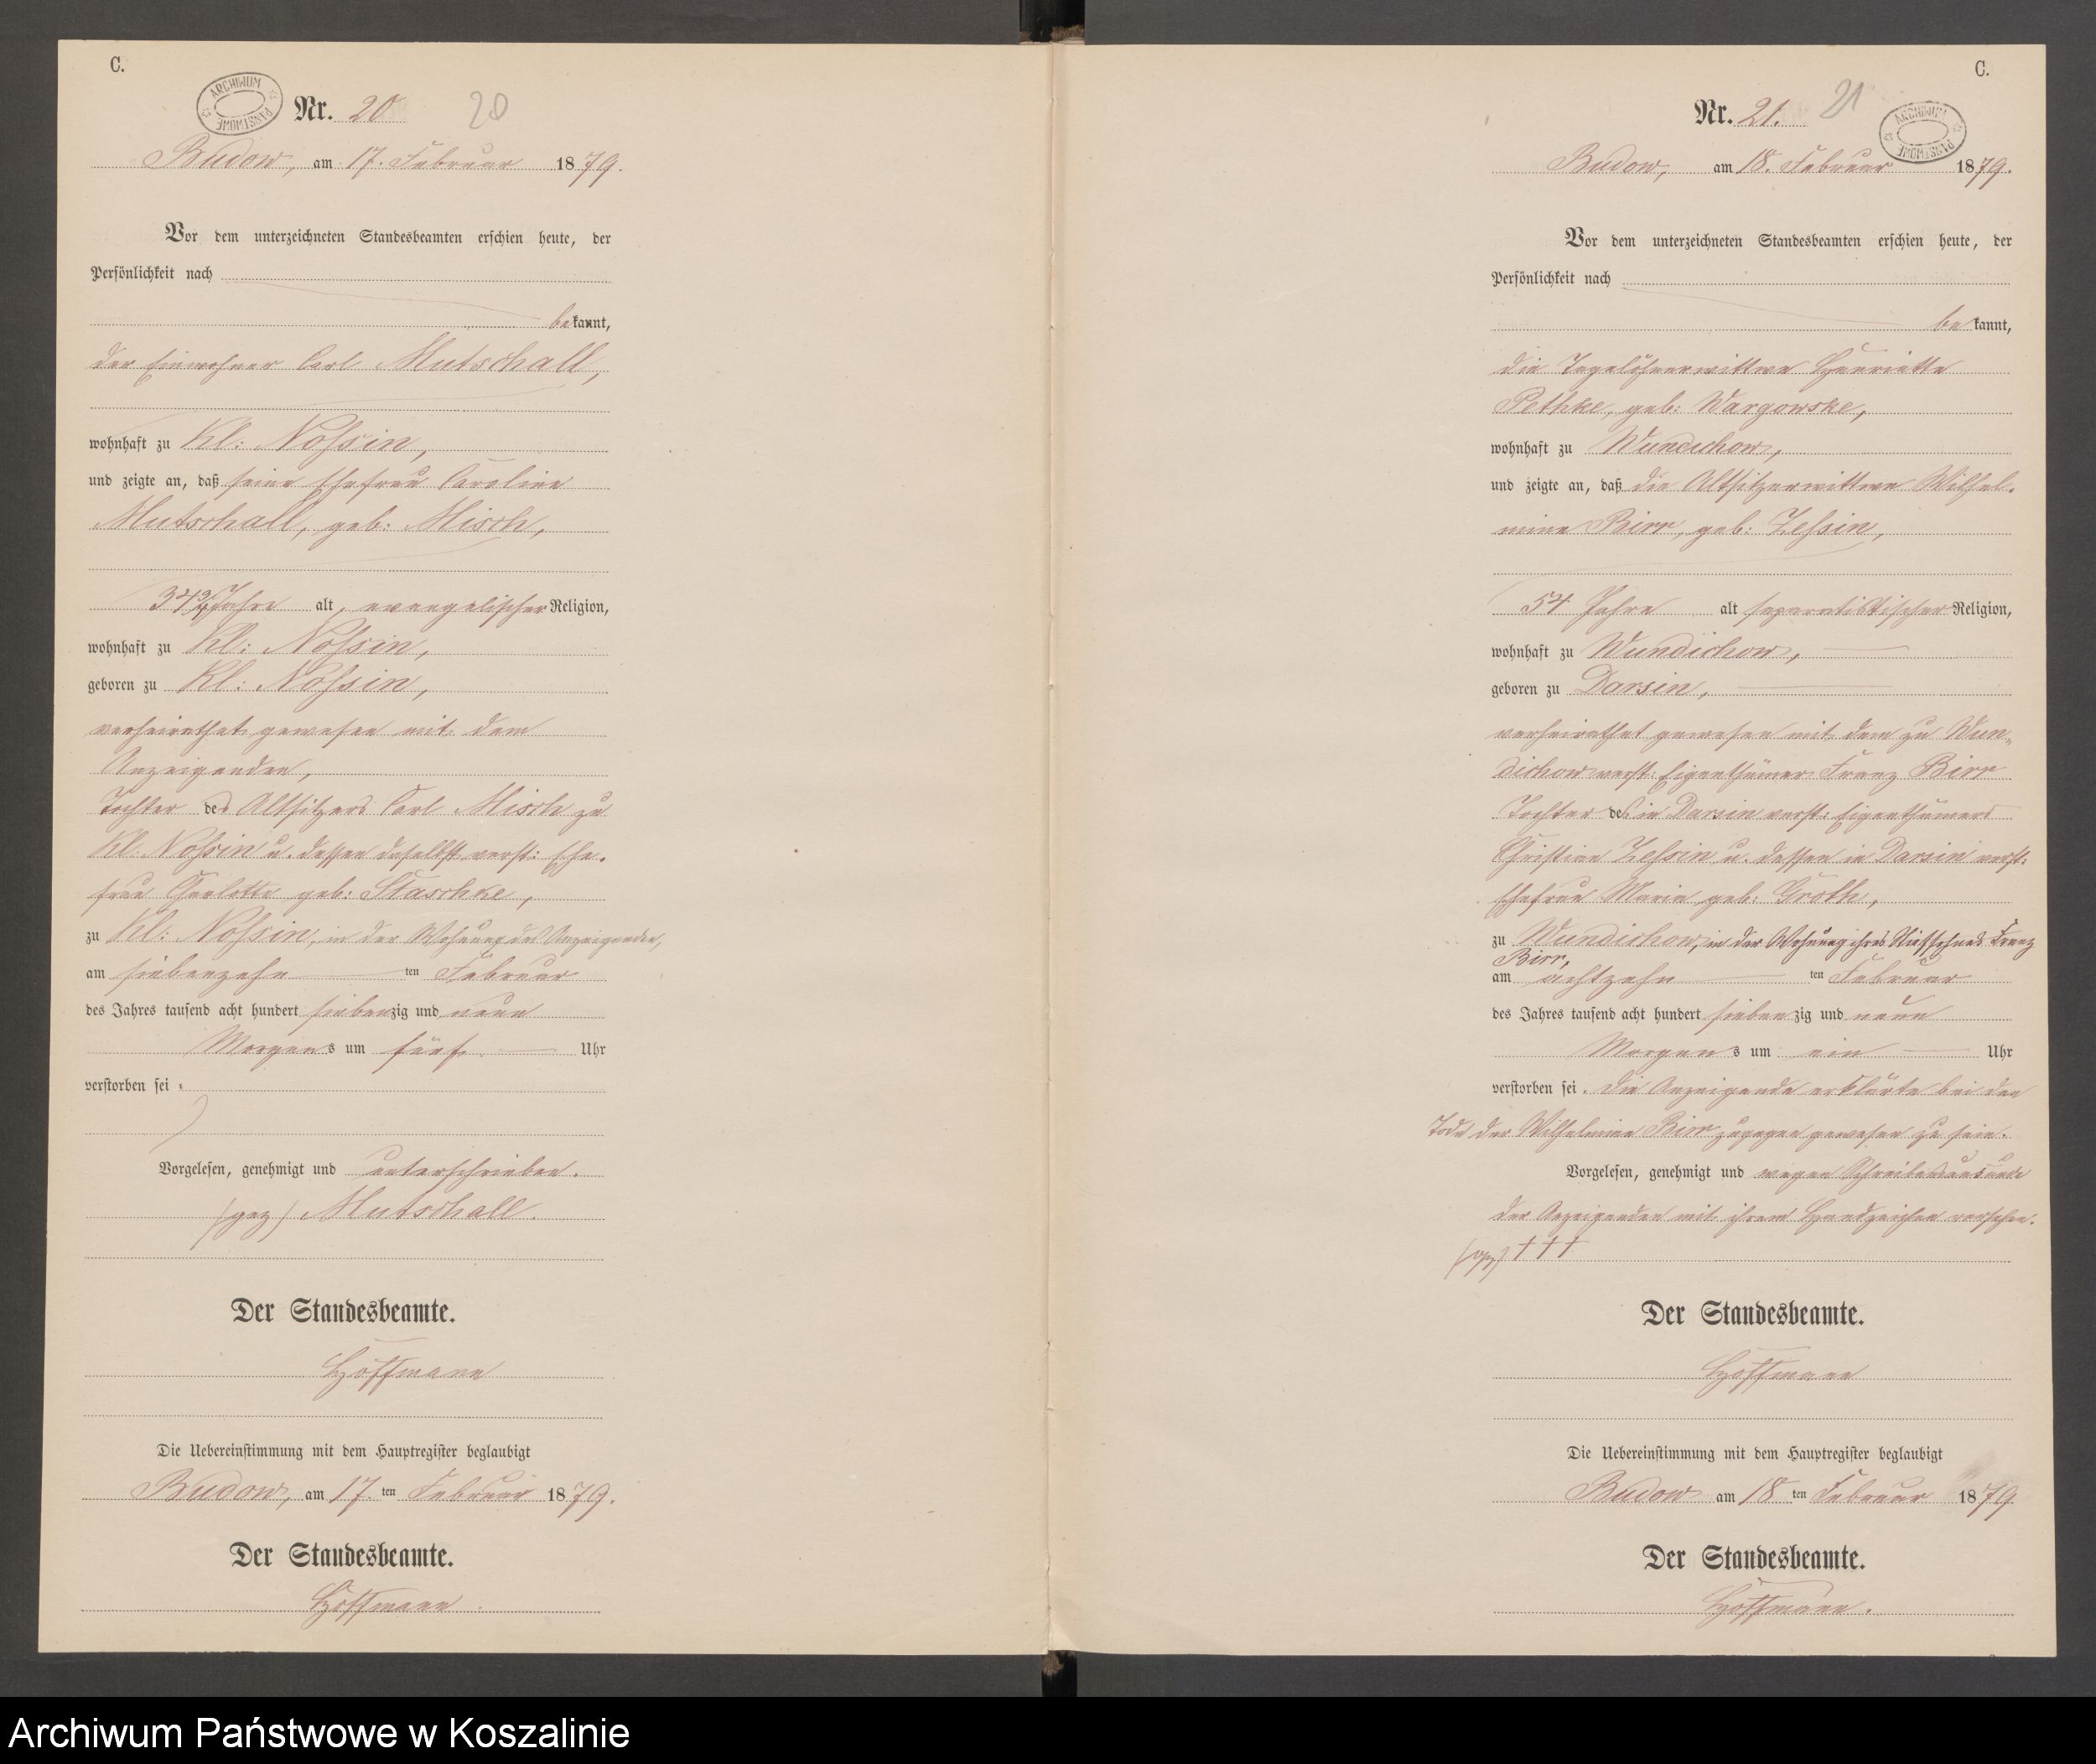 C.
ARCHIWUM PAŃSTWOWE
Nr. 20. 20
Budow, am 17. Februar 1879.
Vor dem unterzeichneten Standesbeamten erschien heute, der
Persönlichkeit nach
bekannt,
der Einwohner Carl Mutschall,
wohnhaft zu Kl: Nossin,
und zeigte an, daß seine Ehefrau Caroline
Mutschall, geb: Misch,
Jahre alt, evangelischer Religion,
wohnhaft zu Kl: Nossin,
geboren zu Kl: Nossin,
verheirathet gewesen mit dem
Anzeigenden,
Tochter des Altsitzers Carl Misch zu
Kl: Nossin u. dessen daselbst verst: Ehe-
frau Charlotte geb: Staschke,
zu Kl: Nossin, in der Wohnung des Anzeigenden,
am siebenzehnten Februar
des Jahres tausend acht hundert siebenzig und neun
Morgens um fünf Uhr
verstorben sei.
Vorgelesen, genehmigt und unterschrieben.
(gez) Mutschall.
Der Standesbeamte.
Hoffmann
Die Uebereinstimmung mit dem Hauptregister beglaubigt
Budow, am 17.ten Februar 1879.
Der Standesbeamte.
Hoffmann.
C.
Nr. 21. 21
ARCHIWUM PAŃSTWOWE
Budow, am 18. Februar 1879.
Vor dem unterzeichneten Standesbeamten erschien heute, der
Persönlichkeit nach
bekannt,
die Tagelöhnerwittwe Henriette
Pethke, geb: Wargowske,
wohnhaft zu Wundichow,
und zeigte an, daß die Altsitzerwittwe Wilhel-
mine Birr, geb: Zessin,
54 Jahre alt separatistischer Religion,
wohnhaft zu Wundichow,
geboren zu Darsin,
verheirathet gewesen mit dem zu Wun-
dichow verst: Eigenthümer Franz Birr
Tochter des in Darsin verst: Eigenthümers
Christian Zessin u. dessen in Darsin verst:
Ehefrau Marie geb: Groth,
zu Wundichow, in der Wohnung ihres Stiefsohnes Franz
Birr,
am achtzehnten Februar
des Jahres tausend acht hundert siebenzig und neun
Morgens um ein Uhr
verstorben sei. Die Anzeigende erklärte bei dem
Tode der Wilhelmine Birr zugegen gewesen zu sein.
Vorgelesen, genehmigt und wegen Schreibensunkunde
der Anzeigenden mit ihrem Handzeichen versehen.
(gez) † † †
Der Standesbeamte.
Hoffmann
Die Uebereinstimmung mit dem Hauptregister beglaubigt
Budow am 18ten Februar 1879
Der Standesbeamte.
Hoffmann.
Archiwum Państwowe w Koszalinie